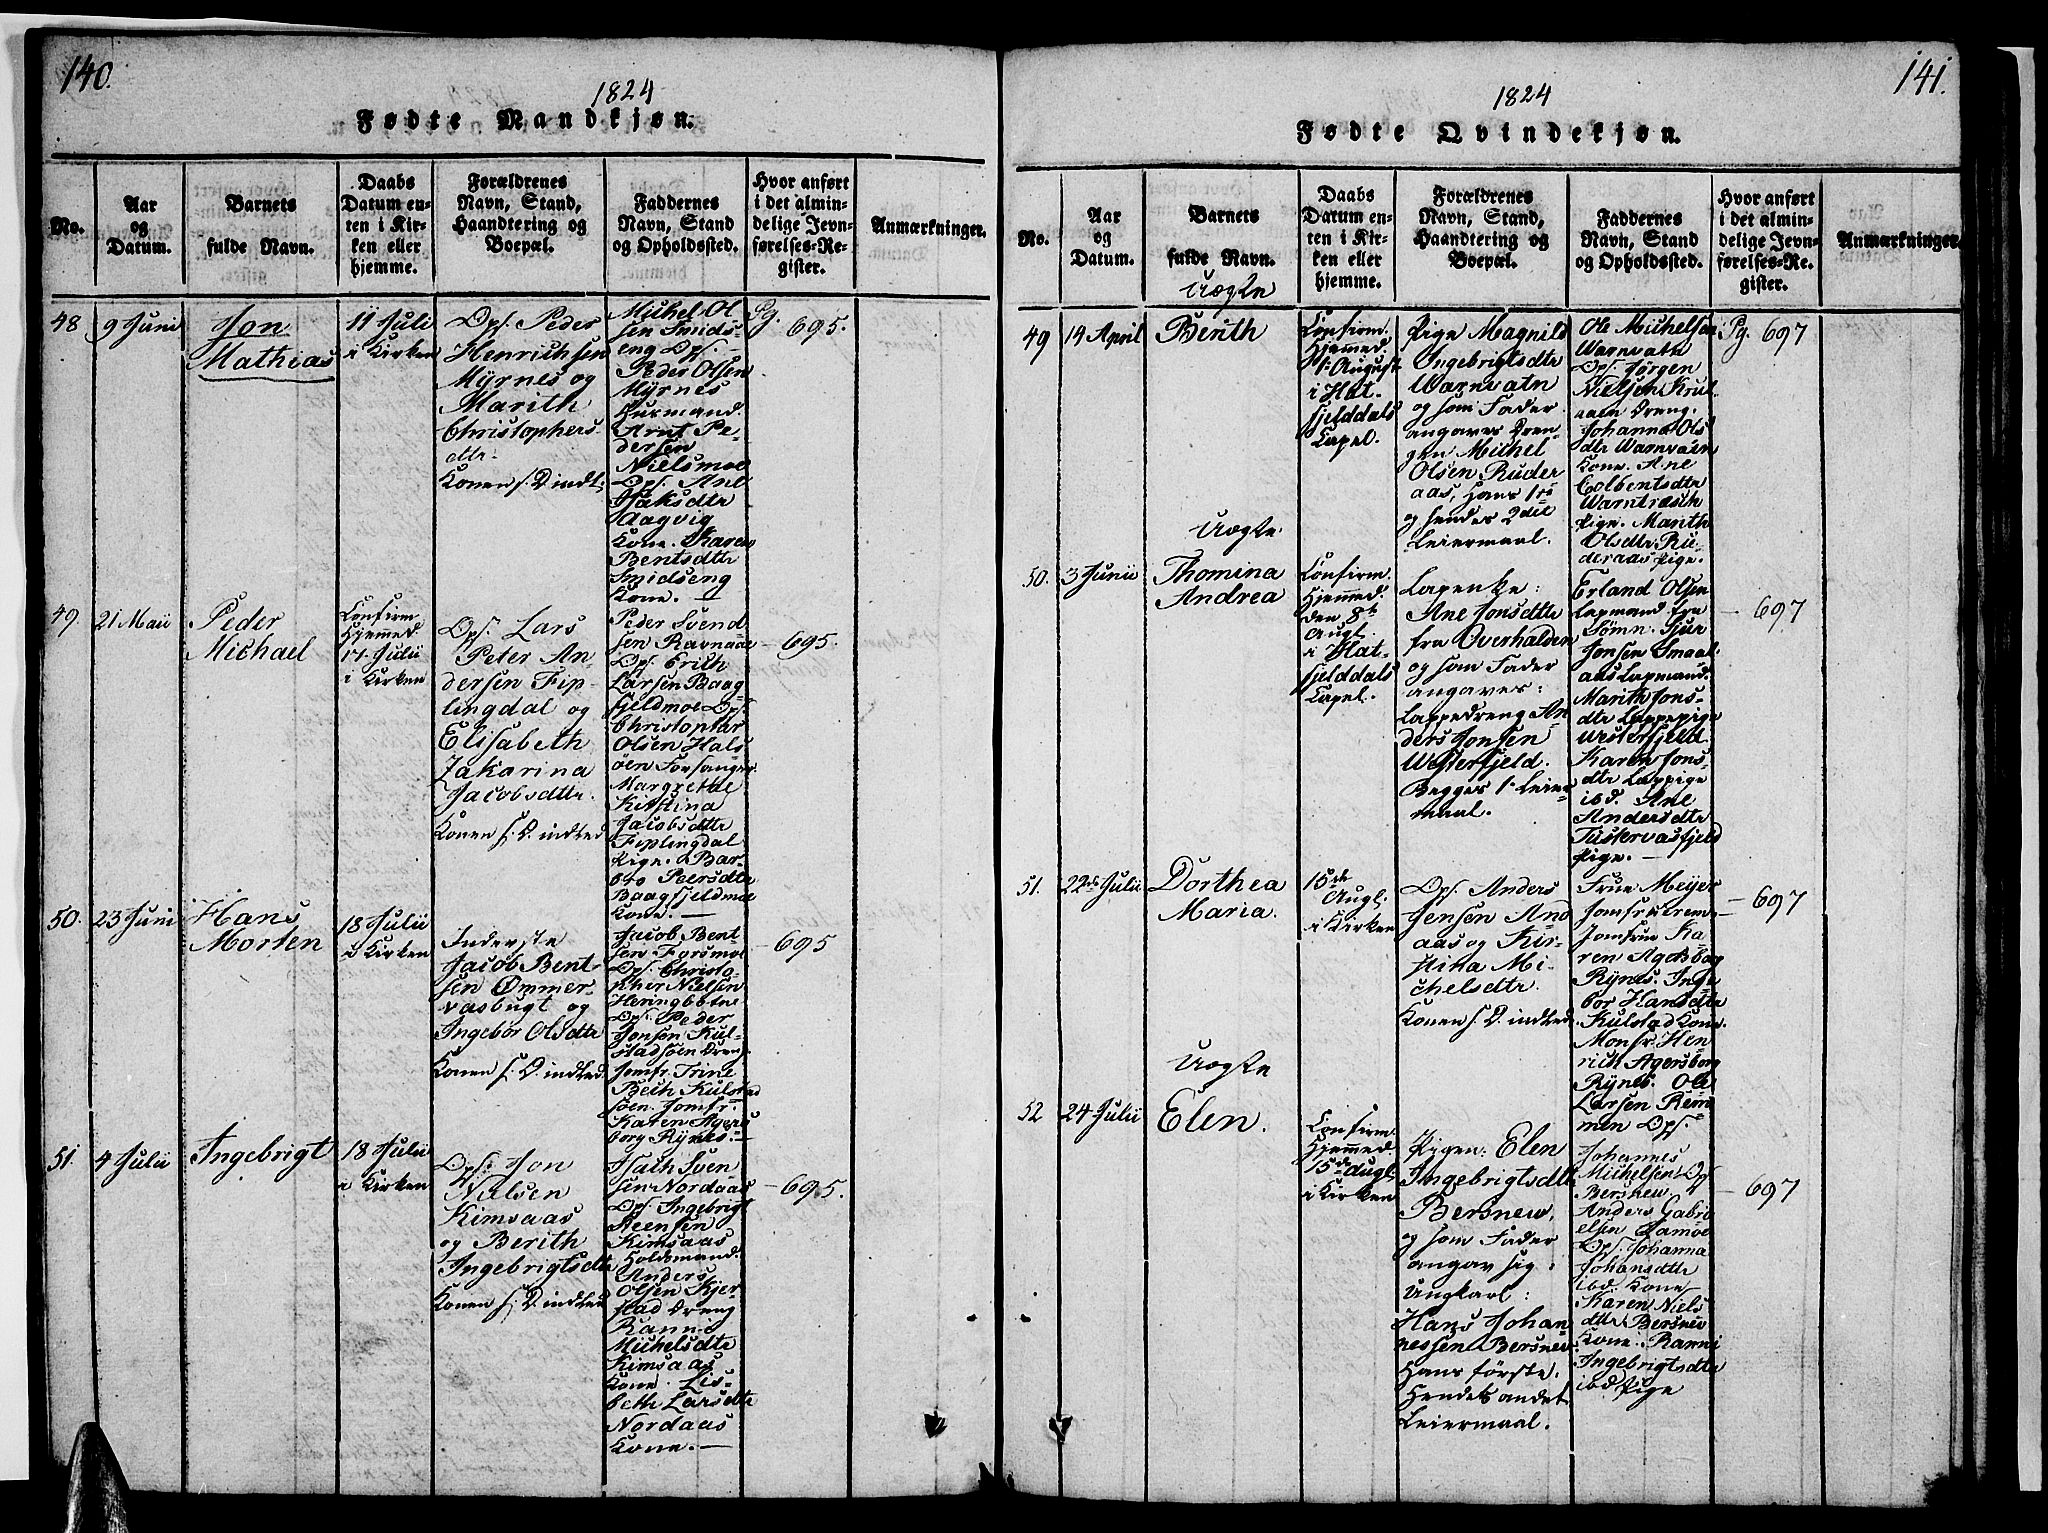 140.
1824
Fødte Mandkjøn.
No.
Aar
og
Datum.
Barnets
fulde Navn.
Daabs
Datum en-
ten i Kir-
ken eller
hjemme.
Forældrenes
Navn, Stand,
Haandtering og
Boepæl.
Faddernes
Navn, Stand
og Opholdssted.
Hvor anført
i det almin-
delige Jevn-
førelses-Re-
gister.
Anmærkninger.
48
9 Juni
Jon
Mathias
11 Juli
i Kirken
Ops. Peder
Henrichsen
Myrnes og
Marith
Christophers-
dtr.
Konen s. D. indt.
Michel Ol
sen Smids-
eng Ops.
Peder Olsen
Myrnes
Huusmand.
Arnt Pe-
dersen
Nielsmoe
Ops. Ane
Isaksdtr
Aagvig
Kone. Karen
Bentsdtr
Smidseng
Kone. —
Pg. 695.
49.
21 Maii
Peder
Michael
Confirm.
Hjemmed.
17 Julii
i Kirken
Ops. Lars
Peter An-
dersen Fip-
lingdal og
Elisabeth
Zakarina
Jacobsdtr.
Konen s. D. indled.
Peder Svend
sen Ravnaae
Ops. Erith
Larsen Baag-
fjeldmoe Ops.
Christophar
Olsen Hals
öen Forsanger
Margrethe
Kirstina
Jacobsdtr
Fiplingdal
Pige. Bar-
bro Peersdtr
Baagfjeldmoe
Kone. —
— 695.
50.
23 Juni
Hans
Morten
18 Julii
i Kirken
Inderste
Jacob Bent-
sen Ommer-
vasbugt og
Ingebor Olsdtr
Konen s. D. indled.
Jacob Bent-
sen Forsmoe
Ops. Christo-
pher Nielsen
Ops. Peder
Jonsen Kul-
stadsöen Dreng
Jomfr. Trine
Beth Kulstad
söen. Jomfr.
Karen Agers
borg Rynes. —
— 695
51.
4 Julii
Ingebrigt
18 Julii
i Kirken
Ops. Jon
Nielsen
Kimsaas
og Berith
Ingebrigtsdtr
Konen s. D. indled.
Sven
sen Nordaas
Ops. Ingebrigt
Steensen
Kimsaas
Holdsmand.
Anders
Olsen Kjer-
stad Dreng
Ranni
Michelsdtr
Kimsaas
Kone. Lis-
beth Larsdtr
Nordaas
Kone. —
— 695.
141.
1824
Fødte Qvindekjøn.
No.
Aar
og
Datum.
Barnets
fulde Navn.
Daabs
Datum en-
ten i Kir-
ken eller
hjemme.
Forældrenes
Navn, Stand,
Haandtering og
Boepæl.
Faddernes
Navn, Stand
og Opholdssted.
Hvor anført
i det almin-
delige Jevn-
førelses-Re-
gister.
Anmærkninger.
49
14 April
Uægte
Berith
Confirm.
Hjemmed.
1 August
i Hat-
fjelddals
Capel.
Pige Magnild
Ingebrigtsdtr
Warnvatn
og som Fader
angaves Dren-
gen Michel
Olsen Ruder
aas, Hans 1ste
og hendes 2det
Leiermaal.
Ole Michelsen
Warnvatn
Ops. Jørgen
Nielsen Krul
Dreng.
Johanna Ols
dtr Warnvatn
Kone. Ane
Colbentsdtr
Warntræsch
Pige. Marith
Olsdtr Ru-
deraas Pige.
Pg. 697
50.
3 Junii
Uægte
Thomina
Andrea
Confirm.
Hjemmed.
den 8de
Augl.
i Hat-
fjelddals
Capel.
Lapenke:
Ane Jonsdtr
fra Overhalden
og som Fader
angaves:
Lappedreng An-
ders Jonsen
Westerfjeld.
Begges 1. Leier-
maal.
Erland Olsen
Lapmand fra
Sømn. Sjur
Jonsen Smaal-
aas Lapmand.
Marith Jons-
dtr Lappepige
Westerfjeld.
Karen Jons-
dtr Lappige
ibd. Ane
Andersdtr
Tuskervasfjeld
Pige. —
— 697
51.
22de Julii
Dorthea
Maria.
15de
Augl.
i Kirken
Ops. Anders
Jensen And
aas og Kir-
stina Mi-
chelsdtr.
Konen s. D. indled.
Frue Meyer
Jomfrue Krem-
Jomfrue Ka-
ren Agersborg
Rynes. Inge
bor Hansdtr
Kulstad Kone.
Monsr. Hen-
rich Agersborg
Rynes. Ole
Larsen Rem
men Ops.
— 697
52
24 Julii
Uægte
Elen.
Confirm.
Hjemmed.
15de Augl.
i Kirken
Pigen: Elen
Ingebrigtsdtr
Bersnew,
og som Fader
angav sig:
Ungkarl:
Hans Johan-
nessen Bersnew
Hans første,
Hendes andet
Leiermaal.
Johannes
Michelsen Ops
Bersnew
Anders Gabri-
elsen
Ops. Johanna
Johansdtr
ibd Kone
Karen Niels
dtr Bersnew
Kone. Ranni
Ingebrigtsdtr
ibd Pige
— 697